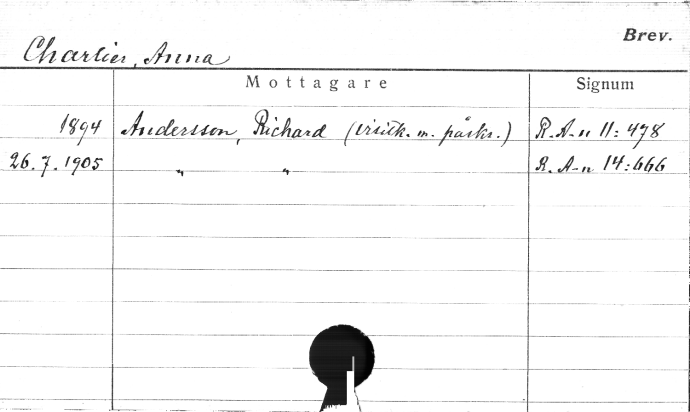 Brev.
Charlier, Anna
Mottagare Signum
1894 Andersson, Richard (visitk. m. påskr.) R. A-n 11:478
26.7.1905 " " R. A-n 14:666